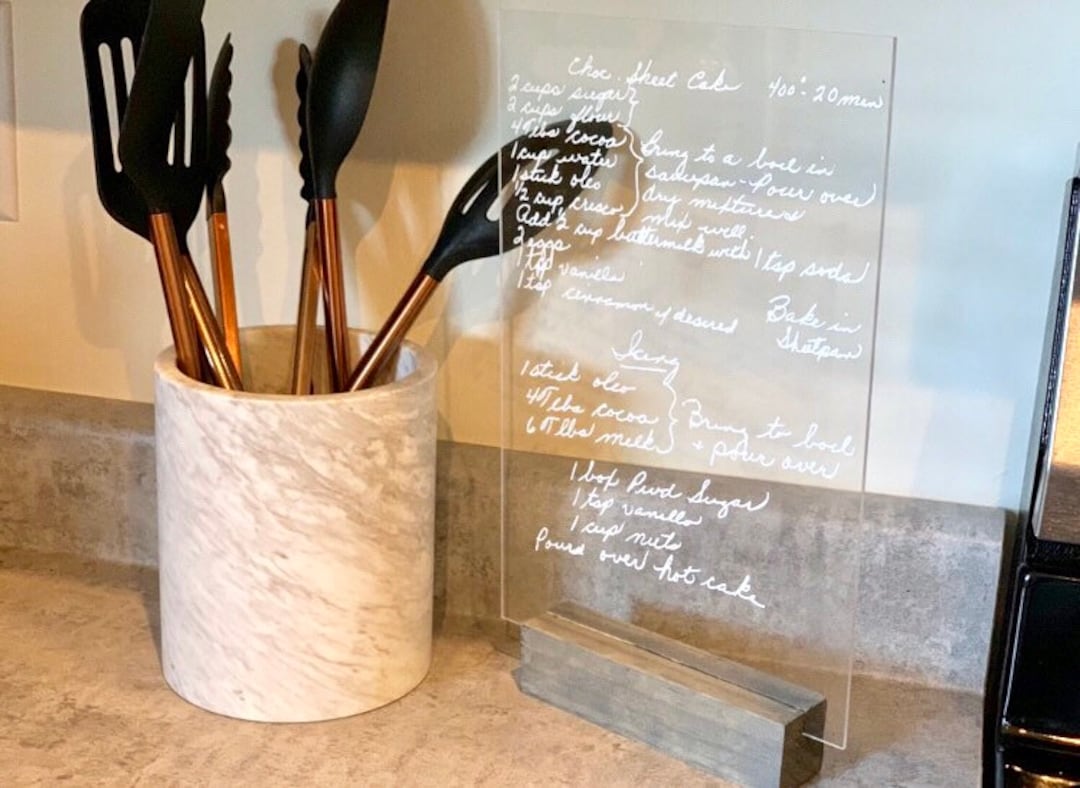 Choc. Sheet Cake 400° 20 min
2 cups sugar
2 cups flour
4 Tlbs cocoa
1 cup water
1 stick oleo
1/2 cup crisco
Bring to a boil in
saucepan - Pour over
dry mixture &
mix well.
Add 1/2 cup buttermilk with 1 tsp soda
2 eggs
1 tsp vanilla
1 tsp cinnamon if desired
Bake in
Sheetpan
Icing
1 stick oleo
4 Tlbs cocoa
6 Tlbs milk
Bring to boil
+ pour over
1 box Pwd Sugar
1 tsp vanilla
1 cup nuts
Pour over hot cake